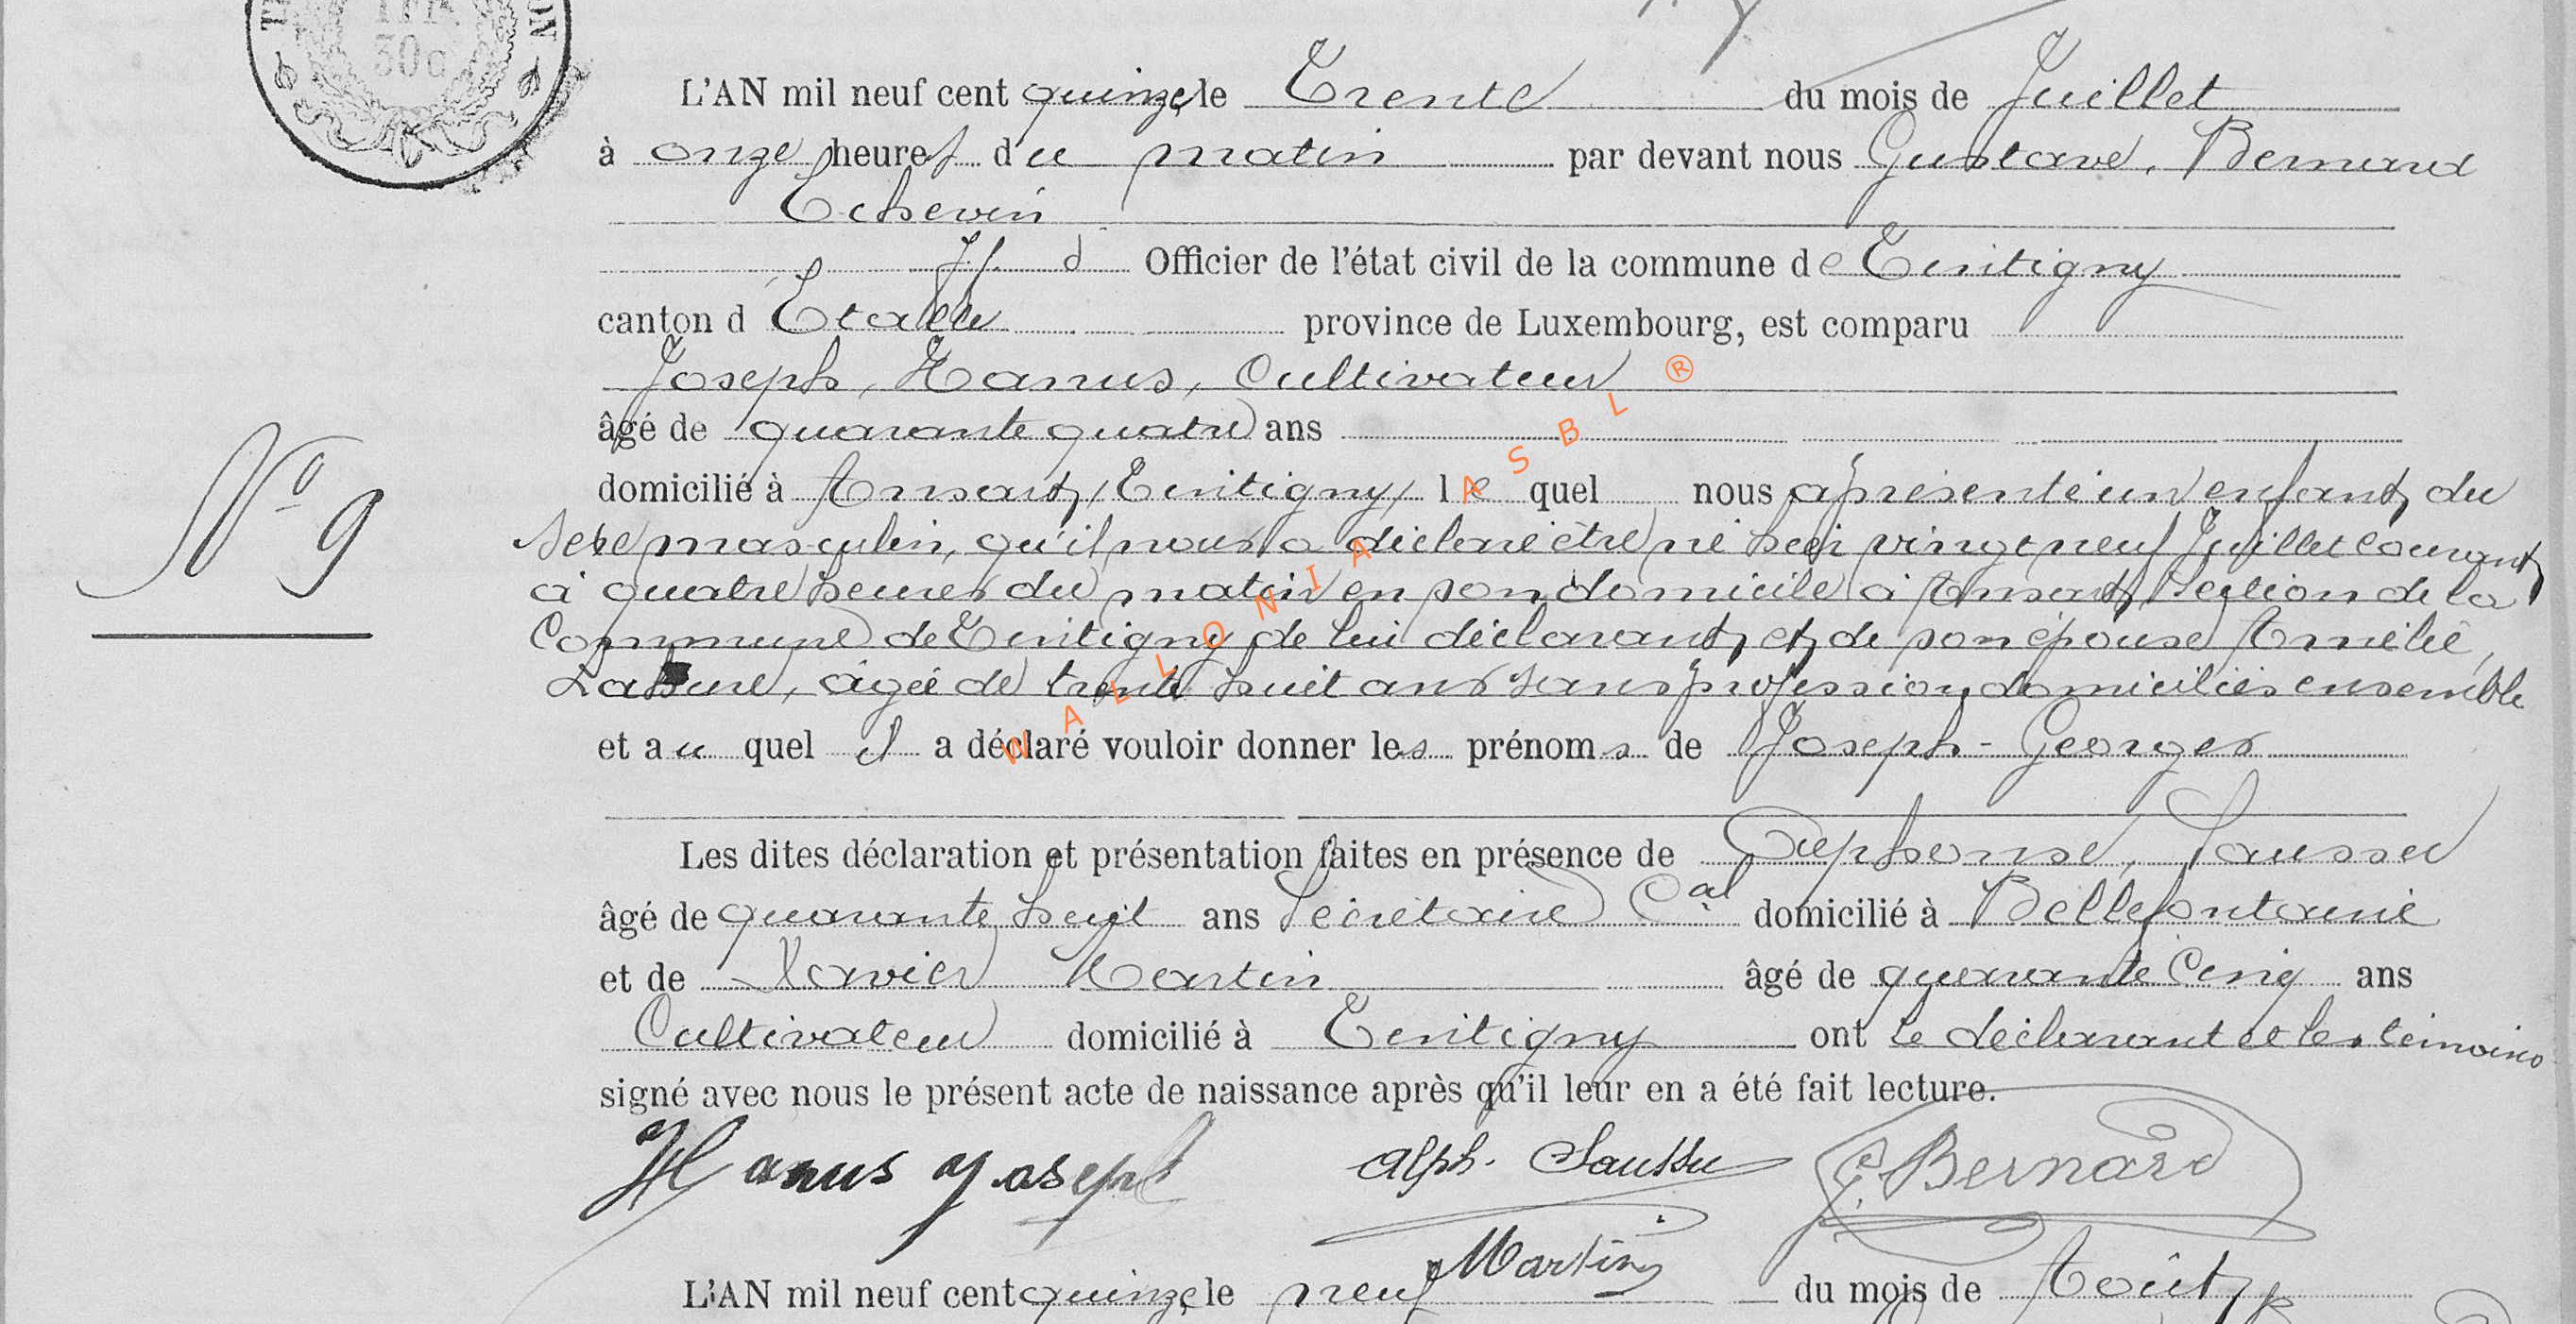 1 FR.
30c
L'AN mil neuf cent quinze, le Trente du mois de Juillet
à onze heures du matin par devant nous Gustave, Bernard
Echevin
ff. d Officier de l'état civil de la commune de Tintigny
canton d'Etalle province de Luxembourg, est comparu
Joseph, Hanus, Cultivateur
âgé de quarante quatre ans
domicilié à Ansart, Tintigny, le quel nous a présenté un enfant du
sexe masculin, qu'il nous a déclaré être né hier vingt neuf Juillet courant
à quatre heures du matin en son domicile à Ansart, Section de la
Commune de Tintigny de lui déclarant, et de son épouse Amélie,
âgée de trente huit ans sans profession domiciliés ensemble
et au quel il a déclaré vouloir donner les prénoms de Joseph-Georges
Les dites déclaration et présentation faites en présence de Alphonse, Saussu
âgé de quarante huit ans Secrétaire Cal domicilié à Bellefontaine
et de Xavier Martin âgé de quarante Cinq ans
Cultivateur domicilié à Tintigny ont le déclarant et les témoins
signé avec nous le présent acte de naissance après qu'il leur en a été fait lecture.
N° 9
Hanus Joseph Alph. Saussu G. Bernard
Martin
L'AN mil neuf cent quinze, le neuf du mois de Août
WALLONIA ASBL ®